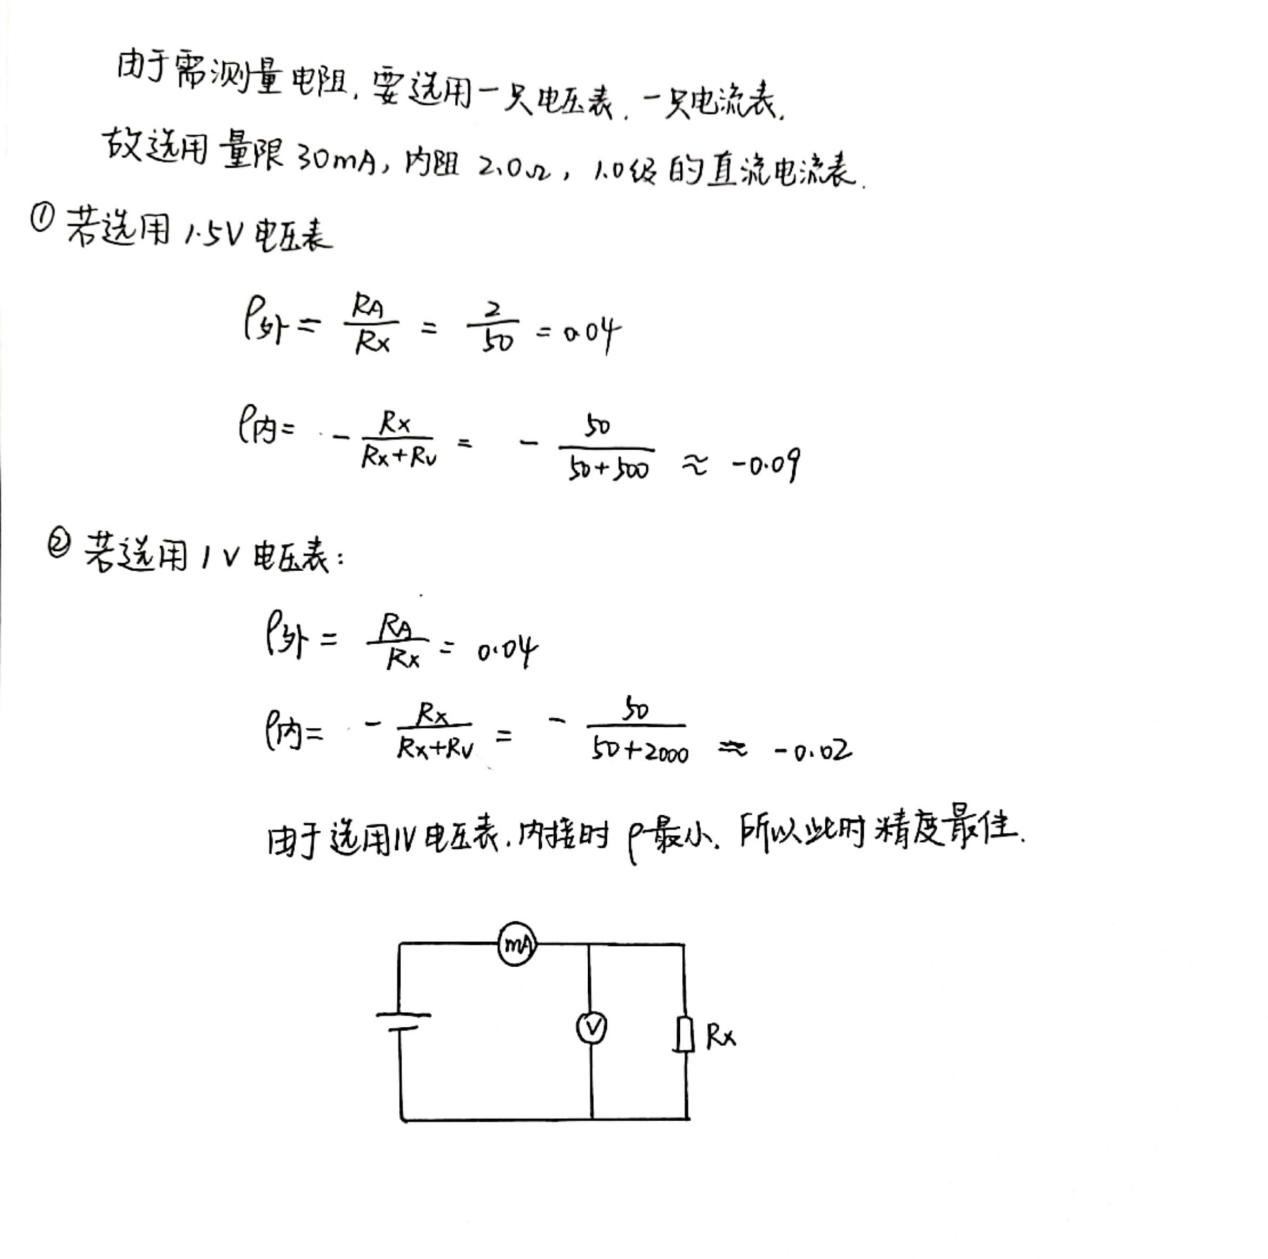 由于需测量电阻,要选用一只电压表,一只电流表.
故选用量限30mA,内阻2.0Ω,1.0级的直流电流表.
①若选用1.5V电压表
ρ外 = RA/Rx = 2/50 = 0.04
ρ内 = - Rx/(Rx+Rv) = - 50/(50+500) ≈ -0.09
②若选用1V电压表:
ρ外 = RA/Rx = 0.04
ρ内 = - Rx/(Rx+Rv) = - 50/(50+2000) ≈ -0.02
由于选用1V电压表,内接时ρ最小.所以此时精度最佳.
mA
V
Rx